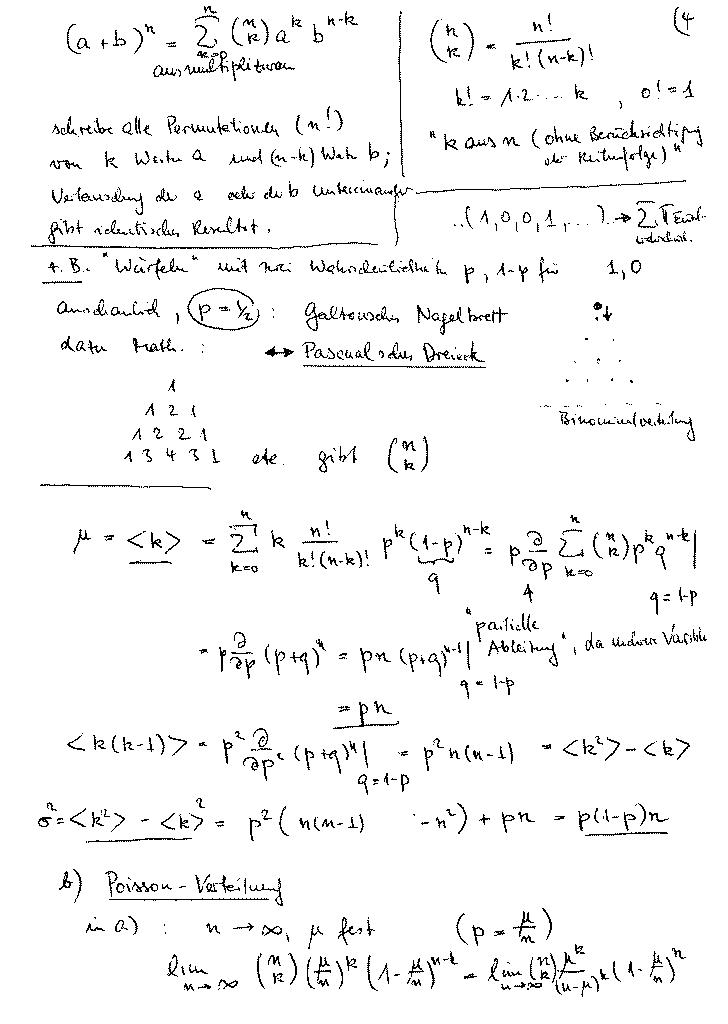 (4
(a+b)^n = \sum_{k=0}^{n} \binom{n}{k} a^k b^{n-k}
ausmultiplizieren
\binom{n}{k} = \frac{n!}{k!(n-k)!}
k! = 1·2····k , 0! = 1
"k aus n (ohne Berücksichtigung
der Reihenfolge)"
schreibe alle Permutationen (n!)
von k Werten a und (n-k) Werten b;
Vertauschung der a oder der b untereinander
gibt identisches Resultat.
..(1,0,0,1,...) → \sum \prod Einzel-
wahrsch.
z.B. "Würfeln" mit zwei Wahrscheinlichkeiten p, 1-p für 1,0
anschaulich, p = 1/2 : Galtonsches Nagelbrett
dazu Math. : ↔ Pascal'sches Dreieck
1
1 2 1
1 2 2 1
1 3 4 3 1 etc. gibt \binom{n}{k}
Binominalverteilung
μ = <k> = \sum_{k=0}^{n} k \frac{n!}{k!(n-k)!} p^k (1-p)^{n-k} = p \frac{∂}{∂p} \sum_{k=0}^{n} \binom{n}{k} p^k q^{n-k} |
q
q = 1-p
"partielle
Ableitung", da mehrere Variable
= p \frac{∂}{∂p} (p+q)^n = pn (p+q)^{n-1} |
q = 1-p
= pn
<k(k-1)> = p^2 \frac{∂}{∂p^2} (p+q)^n |_{q=1-p} = p^2 n(n-1) = <k^2> - <k>
σ^2 = <k^2> - <k>^2 = p^2 ( n(n-1) - n^2) + pn = p(1-p)n
b) Poisson-Verteilung
in a) : n → ∞, μ fest (p = \frac{μ}{n})
\lim_{n→∞} \binom{n}{k} (\frac{μ}{n})^k (1-\frac{μ}{n})^{n-k} = \lim_{n→∞} \binom{n}{k} \frac{μ^k}{(n-μ)^k} (1-\frac{μ}{n})^n